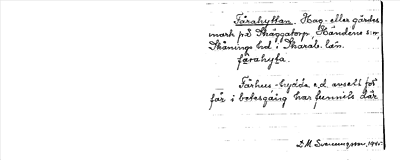 Fårahyttan. Hag- eller gärdes
mark på Skäggatorp, Händene s:n,
Skånings hd i Skarab. län.
fårahyta.
Fårhus-hydda e.d. avsett för
får i betesgång har funnits där
D. M. Svenningsson, 1945